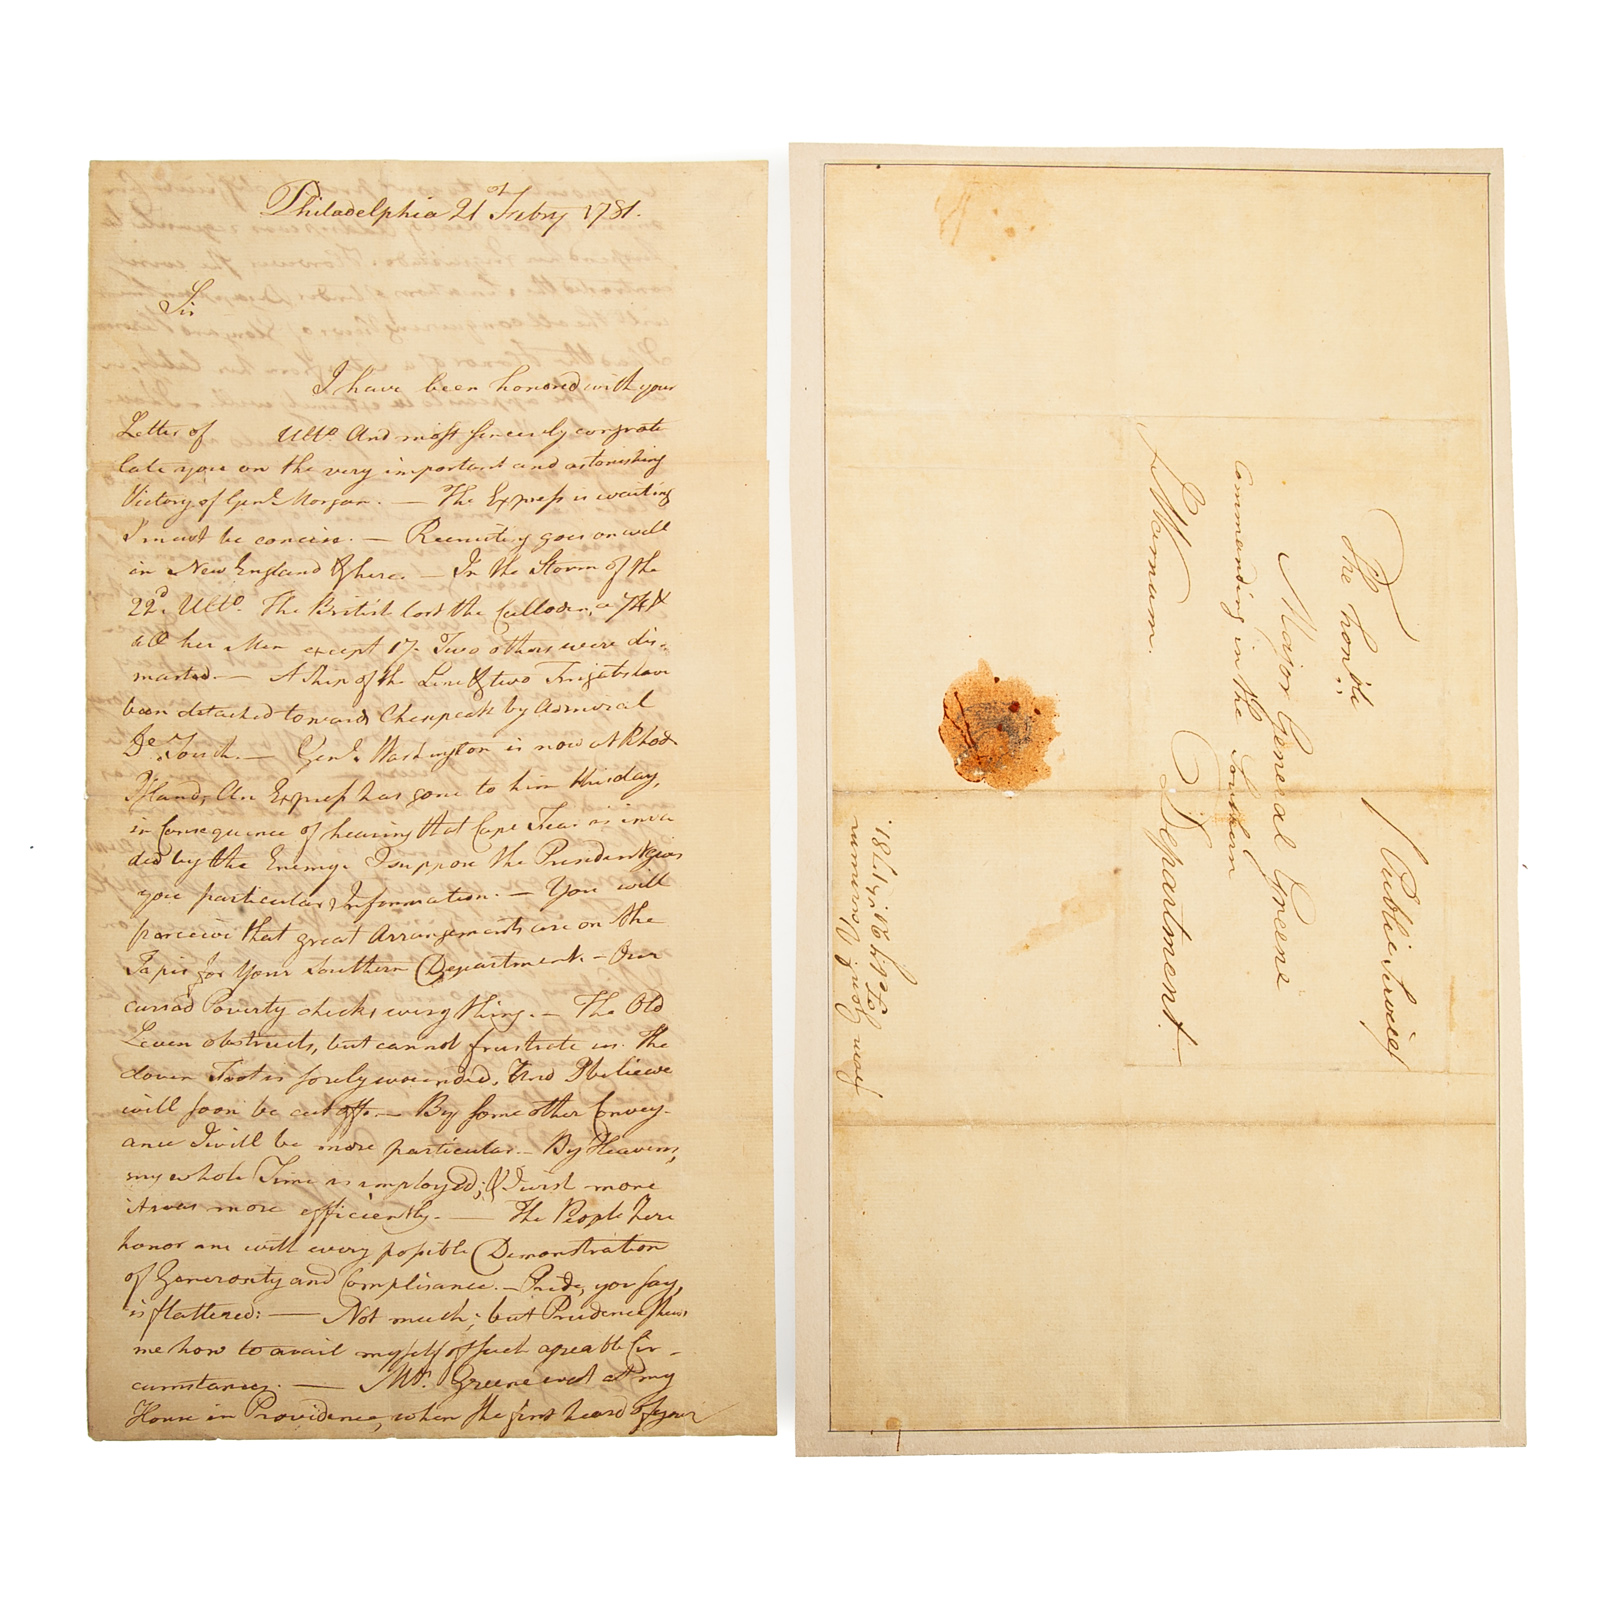 Philadelphia 21st Febry 1781.
Sir
I have been honored with your
Letter of Ulto And most sincerely congratu
late you on the very important and astonishing
Victory of Genl. Morgan. — The Express is waiting
I must be concise. — Recruiting goes on well
in New England & here. — In the Storm of the
22d. Ulto. The British lost the Culloden, a 74 &
all her Men except 17. Two others were dis-
masted. — A Ship of the Line & two Frigates have
been detached towards Chesapeak by Admiral
De Touch. — Genl. Washington is now at Rhode
Island, An Express has gone to him this day,
in Consequence of hearing that Cape Fear is inva
ded by the Enemy. I suppose the President gives
you particular Information. — You will
perceive that great Arrangements are on the
Tapis for your Southern Department. — Our
cursed Poverty checks every thing. — The Old
Leven obstructs, but cannot frustrate us. The
cloven Foot is sorely wounded, And I believe
will soon be cut off. — By some other Convey-
ance I will be more particular. — By Heavens,
my whole Time is employed; & I wish more
it was more efficiently. — The People here
honor me with every possible Demonstration
of Generosity and Complisance. — Pride, you say,
is flattered: — Not much; but Prudence shews
me how to avail myself of such agreable Cir-
cumstances. — Mrs. Greene was at my
House in Providence, when she first heard of your
The honble
Major General Greene
Commanding in the Southern
Department.
J. M Varnum.
Public Service
From Genl. Varnum
Feby 21st 1781.